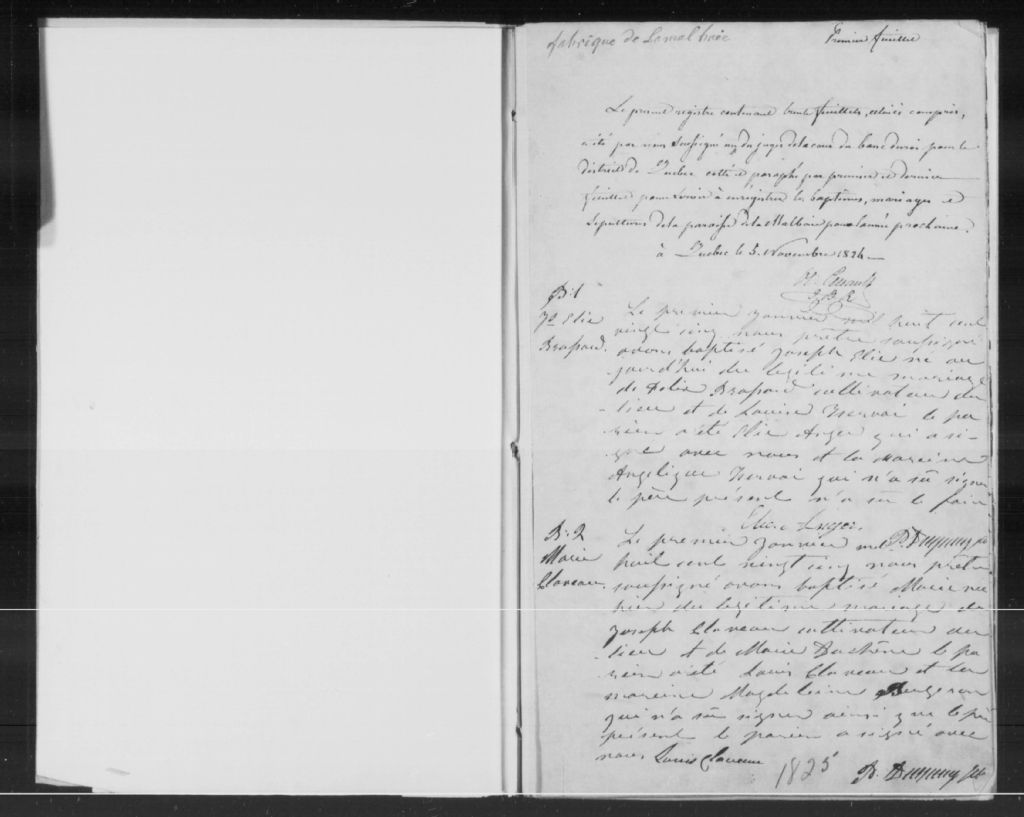 fabrique de Lamalbaie
Premier feuillet
Le present registre contenant trente feuillets, celui-ci compris,
a été par nous Soussigné un des juges de la cour du banc du roi pour le
district de Quebec cotté et paraphé par premier et dernier
feuillet pour servir à enrégistrer les baptêmes, mariages et
Sepultures de la paroisse de la Malbaie pour l'année prochaine.
à Quebec le 5. Novembre 1824
J. B. R
B: 1
Jh Elie
Brassard.
Le premier Janvier mil huit cent
vingt cinq nous prêtre soussigné
avons baptisé Joseph Elie né au
jourd'hui du legitime mariage
de Brassard cultivateur du
lieu et de Louise Tservai le pa
rein a été Elie Anger qui a si-
gné avec nous et la Mareine
Angelique Tservai qui n'a sû signer
le père présent n'a sû le faire
Elie Anger.
B. Duguay ptr
B: 2
Marie
Claveau.
Le premier Janvier mil
huit cent vingt cinq nous prêtre
soussigné avons baptisé Marie née
hier du legitime mariage de
Joseph Claveau cultivateur du
lieu et de Marie Duchêne le pa
rein a été Louis Claveau et la
mareine Magdeleine
qui n'a sû signer ainsi que le père
présent le parein a signé avec
nous Louis Claveau
1825
B. Duguay ptr